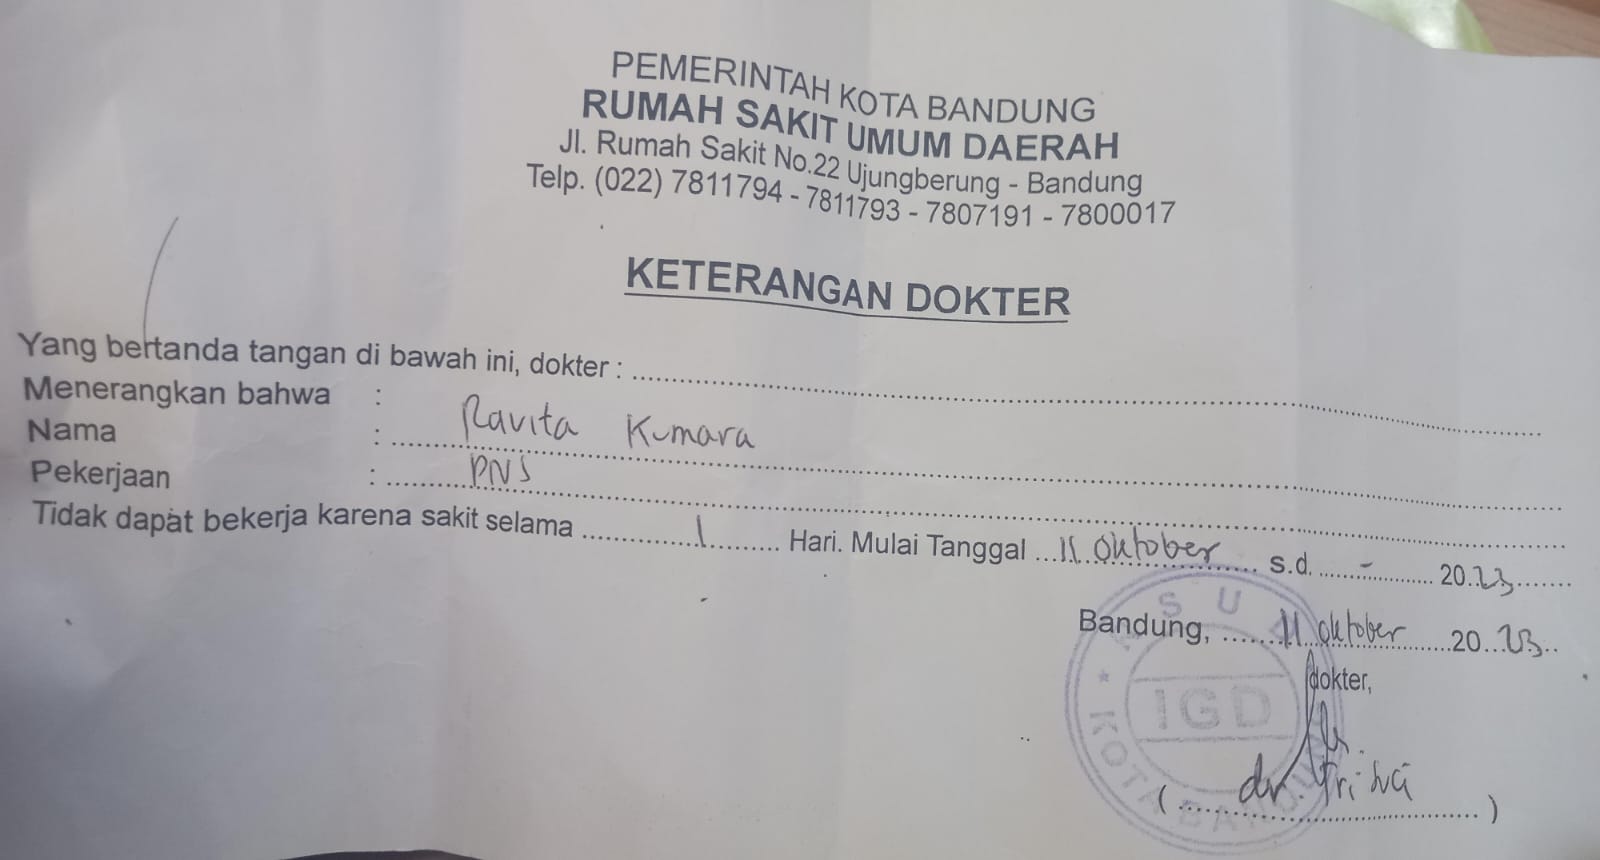 PEMERINTAH KOTA BANDUNG
RUMAH SAKIT UMUM DAERAH
Jl. Rumah Sakit No.22 Ujungberung - Bandung
Telp. (022) 7811794 - 7811793 - 7807191 - 7800017
KETERANGAN DOKTER
Yang bertanda tangan di bawah ini, dokter :
Menerangkan bahwa :
Nama : Ravita Kumara
Pekerjaan : PNS
Tidak dapat bekerja karena sakit selama 1 Hari. Mulai Tanggal 11 oktober s.d. - 2023
Bandung, 11 oktober 2023
dokter,
(dr. )
IGD
KOTA BANDUNG